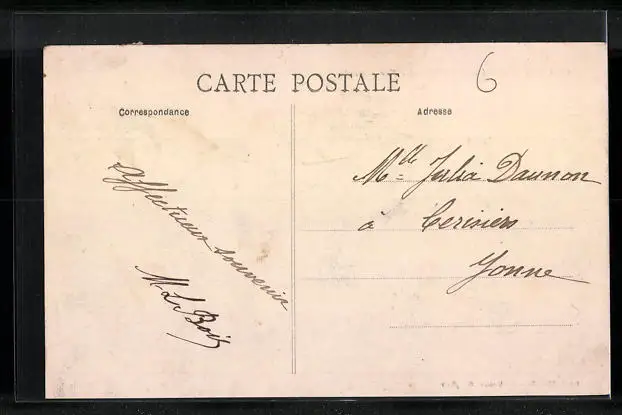 CARTE POSTALE
6
Correspondance
Adresse
Affectueux souvenir
M. L. Bois
Mlle Julia Daumon
à Cerisiers
Yonne